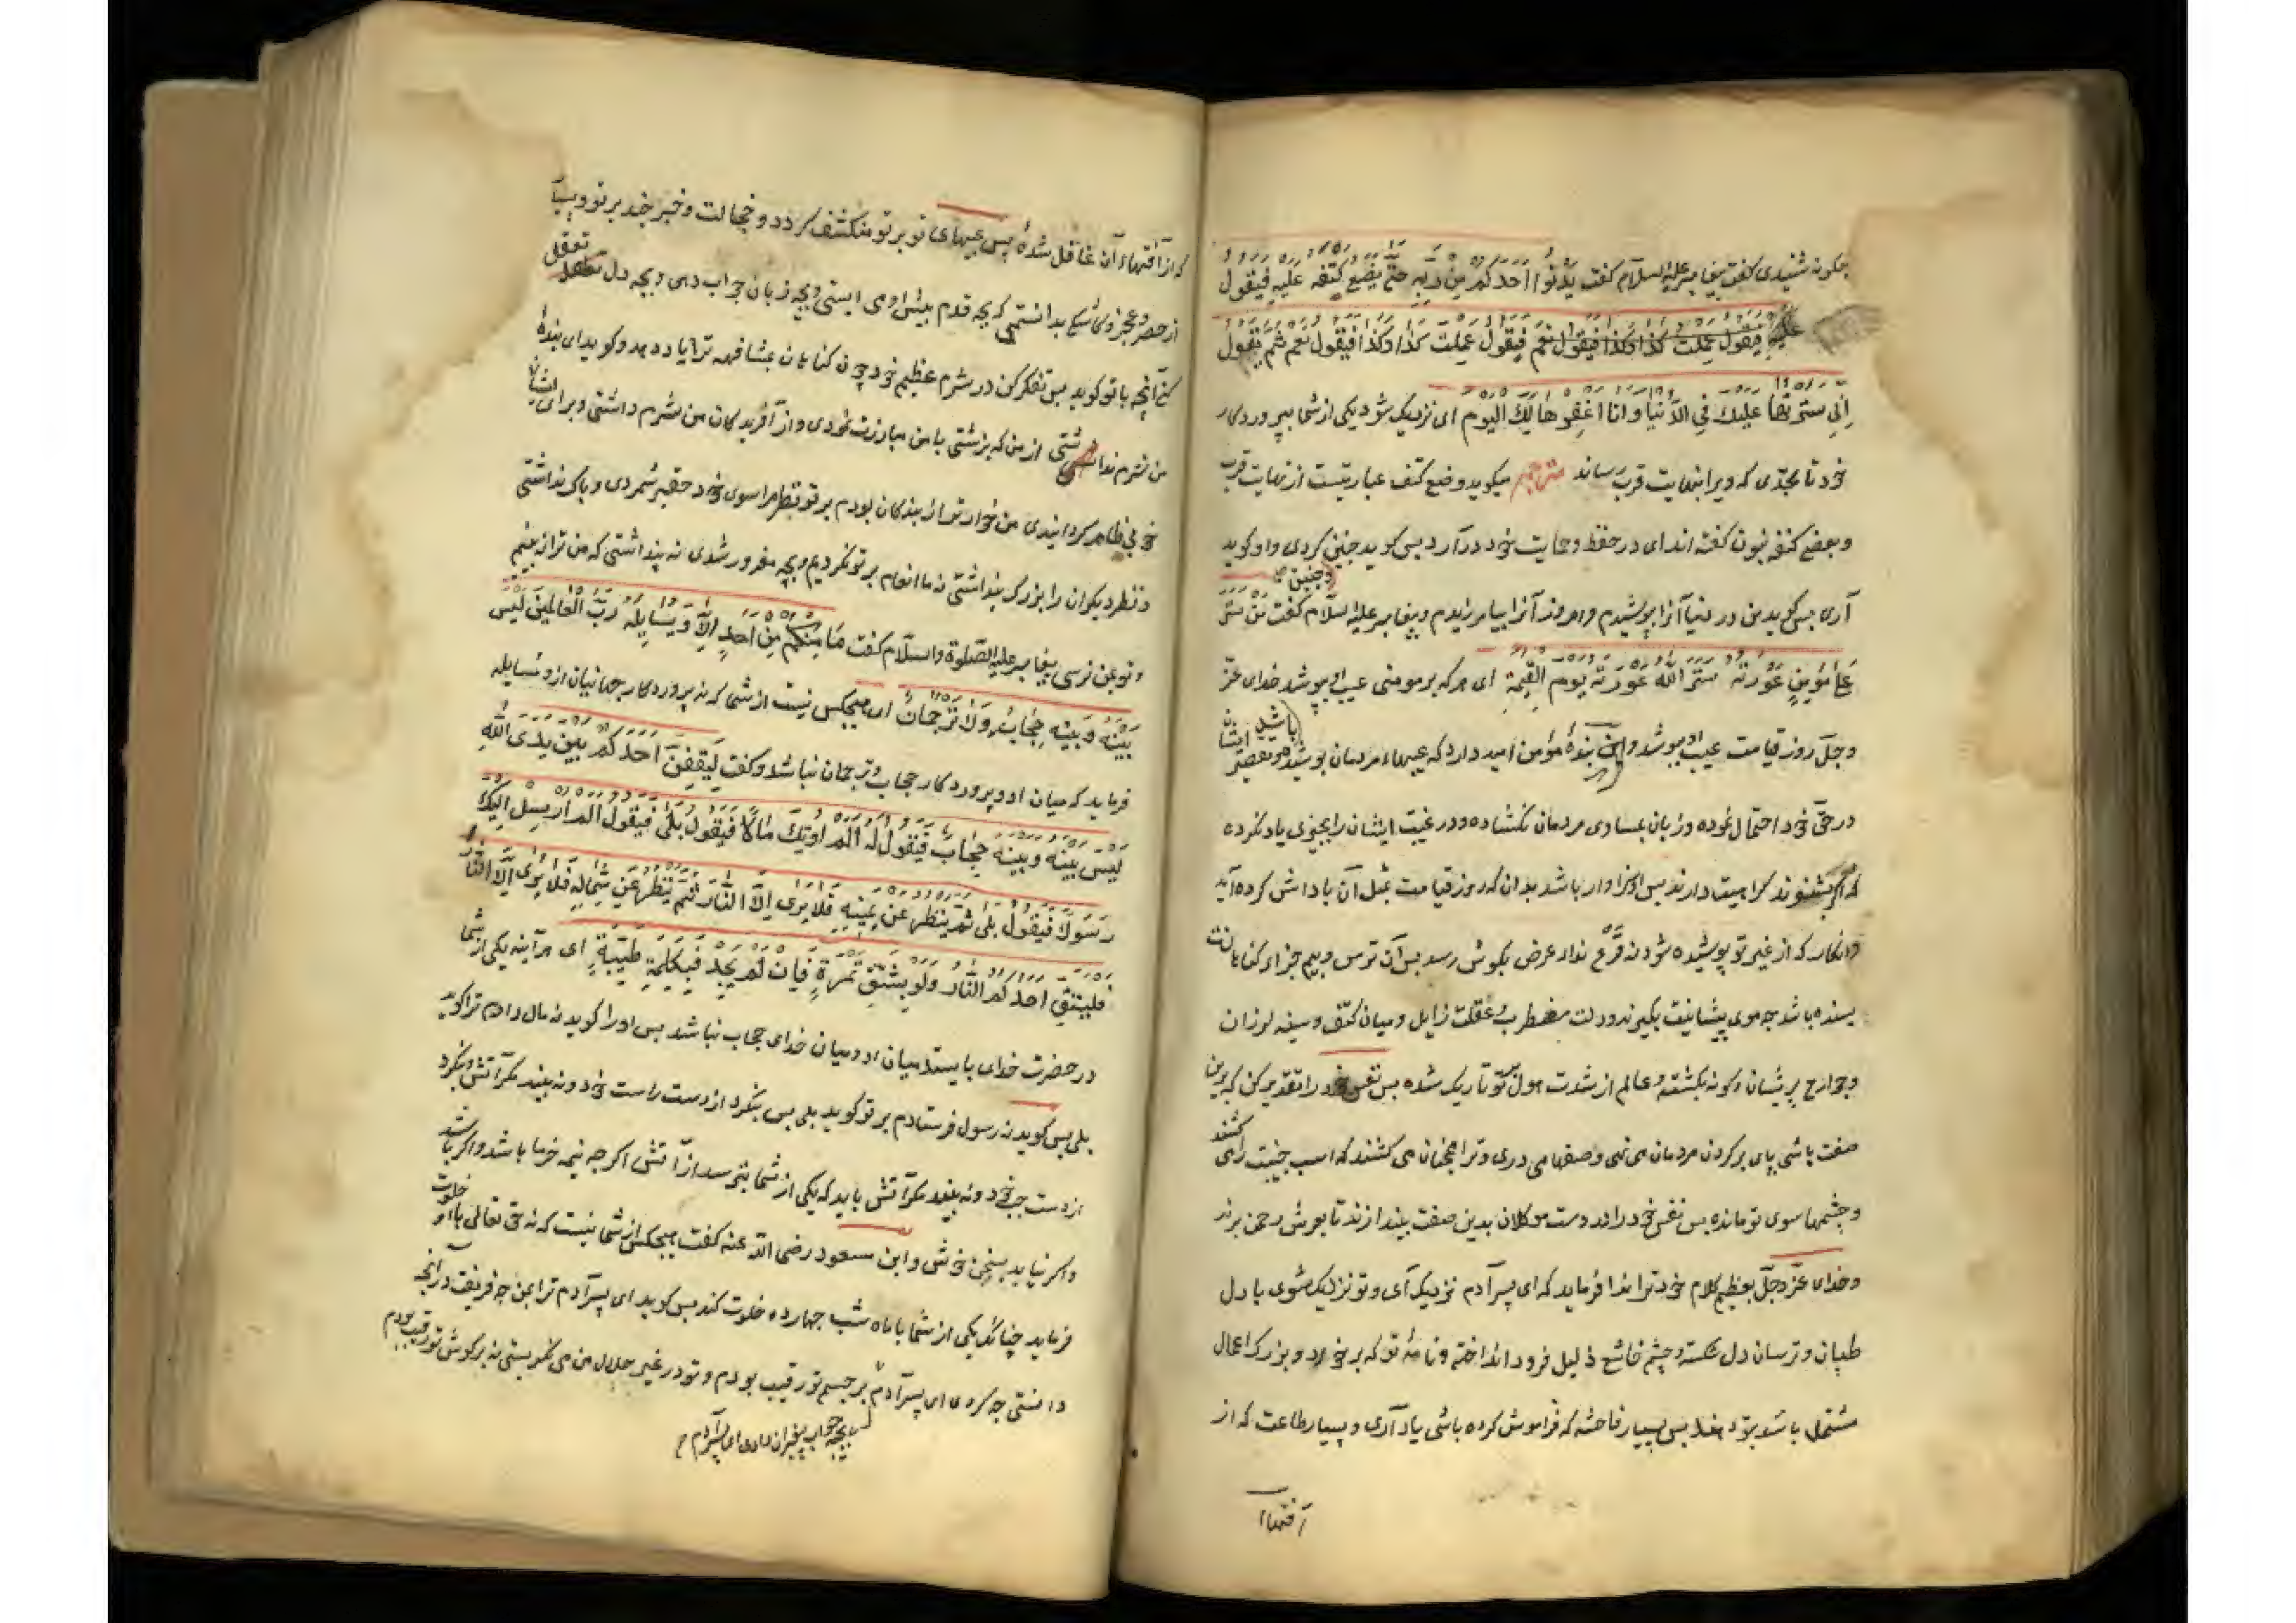 چکونه شنیدی کفت پیغامبر علیه السلام کفت یَدْنُوا اَحَدُکُمْ مِنْ رَبِّهِ حَتّٰی یَضَعَ کَتِفَهُ عَلَیْهِ فَیَقُولُ
علیه فیقول عملت کذا وکذا فیقول نعم فیقول عَمِلْتَ کَذَا وکذا فیقول نعم ثُمَّ یَقُولُ
اِنِّی سترتها علیك فی الدُّنیا وانا اغفرها لَكَ الیوم ای نزدیک شود یکی از شما بپروردکار
خود تا بحدّی که ویرا بنهایت قرب رساند مترجم میکوید وضع کتف عبارتیست از نهایت قرب
وبعضی کنفه بنون کفته اند ای در حفظ وحمایت خود درآرد پس کوید چنین کردی واو کوید
وچنین
آری پس کوید من در دنیا آنرا پوشیدم وامروز آنرا بیامرزیدم وپیغامبر علیه السلام کفت مَن سَتَرَ
عَلٰی مُؤمِنٍ عَوْرَتَهُ سَتَرَ اللّٰهُ عَوْرَتَهُ یَوْمَ القیٰمَةِ ای هرکه بر مومنی عیب او بپوشد خدای عزّ
وجلّ روز قیامت عیب او بپوشد واین بندهٔ مؤمن امید دارد که عیبهاء مردمان پوشیده باشد وتقصیر ایشان
در حقّ خود احتمال نموده وزبان بمساوی مردمان نکشاده ودر غیبت ایشان را بچیزی یاد نکرده
که اکر بشنوند کراهیت دارند پس او سزاوار باشد بدان که روز قیامت بمثل آن پاداش کرده آید
وانکار که از غیر تو پوشیده شود نه قَرْع نداء عرض بکوش رسد بس آن ترس وبیم جزاء کناهانت
بسنده باشد چه موی پیشانیت بکیرند ودلت مضطرب وعقلت زایل ومیان کتف وسینه لرزان
وجوارح پریشان وکونه بکشته وعالم از شدت هول بر تو تاریک شده پس نفس خود را تقدیر کن که برین
صفت باشی پای بر کردن مردمان می نهی وصفها می دری وترا همچنان می کشند که اسپ جنیبت را کشند
وچشمها سوی تو مانده پس نفس خود را در دست موکلان بدین صفت بیندار تا بعرش رحمن برند
وخدای عزّ وجلّ بعظیم کلام خود ترا ندا فرماید که ای پسر آدم نزدیک آی وتو نزدیک شوی با دل
طپان وترسان دل شکسته وچشم خاشع ذلیل فرود انداخته ونامهٔ تو که بر خرد وبزرک اعمال
مشتمل باشد بتو دهند پس بسیار فاحشه که فراموش کرده باشی یاد آری وبسیار طاعت که از
آفتهاء
که از آفتهاء آن غافل شدهٔ پس عیبهای تو بر تو منکشف کردد وخجالت وخبر چند بر تو وبسیا
از حصر وعجز وکاشکی بدانستمی که بچه قدم پیش او می ایستی وبچه زبان جواب دهی وبچه دل تعقل
کنی آنچه با تو کوید پس تفکر کن در شرم عظیم خود چون کناهان بمشافهه ترا یاد دهد وکوید ای بندهٔ
من شرم نداشتی از من که بزشتی با من مبارزت نمودی واز آفریدکان من شرم داشتی وبرای ایشان
خوبی ظاهر کردانیدی من خوارتر از بندکان بودم بر تو نظر مرا سوی خود حقیر شمردی وباک نداشتی
ونظر دیکران را بزرک پنداشتی نه ما انعام بر تو نکردیم وبچه مغرور شدی نه پنداشتی که من ترا نه بینم
وتو بمن نرسی پیغامبر علیه الصّلوة والسّلام کفت مَا مِنْکُمْ مِنْ اَحَدٍ اِلَّا وَیُسَایِلُهُ رَبُّ الْعَالَمِینَ لَیْسَ
بَیْنَهُ وَبَیْنَهُ حِجَابٌ وَلَا تَرْجُمَانٌ ای هیچکس نیست از شما که نه پروردکار جهانیان ازو مسایله
فرماید که میان او وپروردکار حجاب وترجمان نباشد وکفت لَیَقِفَنَّ اَحَدُکُمْ بَیْنَ یَدَیِ اللّٰهِ
لَیْسَ بَیْنَهُ وَبَیْنَهُ حِجَابٌ فَیَقُولُ لَهُ اَلَمْ اُوتِكَ مَالًا فَیَقُولُ بَلٰی فَیَقُولُ اَلَمْ اُرْسِلْ اِلَیْكَ
رَسُولًا فَیَقُولُ بَلٰی ثُمَّ یَنْظُرُ عَنْ یَمِینِهِ فَلَا یَرٰی اِلَّا النَّارَ ثُمَّ یَنْظُرُ عَنْ شِمَالِهِ فَلَا یَرٰی اِلَّا النَّارَ
فَلْیَتَّقِ اَحَدُکُمُ النَّارَ وَلَوْ بِشِقِّ تَمْرَةٍ فَاِنْ لَمْ یَجِدْ فَبِکَلِمَةٍ طَیِّبَةٍ ای هرآینه یکی از شما
در حضرت خدای بایستد میان او ومیان خدای حجاب نباشد پس او را کوید نه مال دادم ترا کوید
بلی پس کوید نه رسول فرستادم بر تو کوید بلی پس بنکرد از دست راست خود ونه بیند مکر آتش وبنکرد
از دست چپ خود ونه بیند مکر آتش باید که یکی از شما بترسد از آتش اکرچه نیمه خرما باشد واکر باشد
واکر نیابد بسخن خوش وابن مسعود رضی الله عنه کفت هیچکس از شما نیست که نه حق تعالی با او خلوت
فرماید چنانکه یکی از شما با ماه شب چهارده خلوت کند پس کوید ای پسر آدم ترا بمن چه فریفت در آنچه
دانستی چه کردی ای پسر آدم بر چشم تو رقیب بودم وتو در غیر حلال من می نکریستی نه بر کوش تو رقیب بودم
بچه جواب پیغبران دادی ای پسر آدم